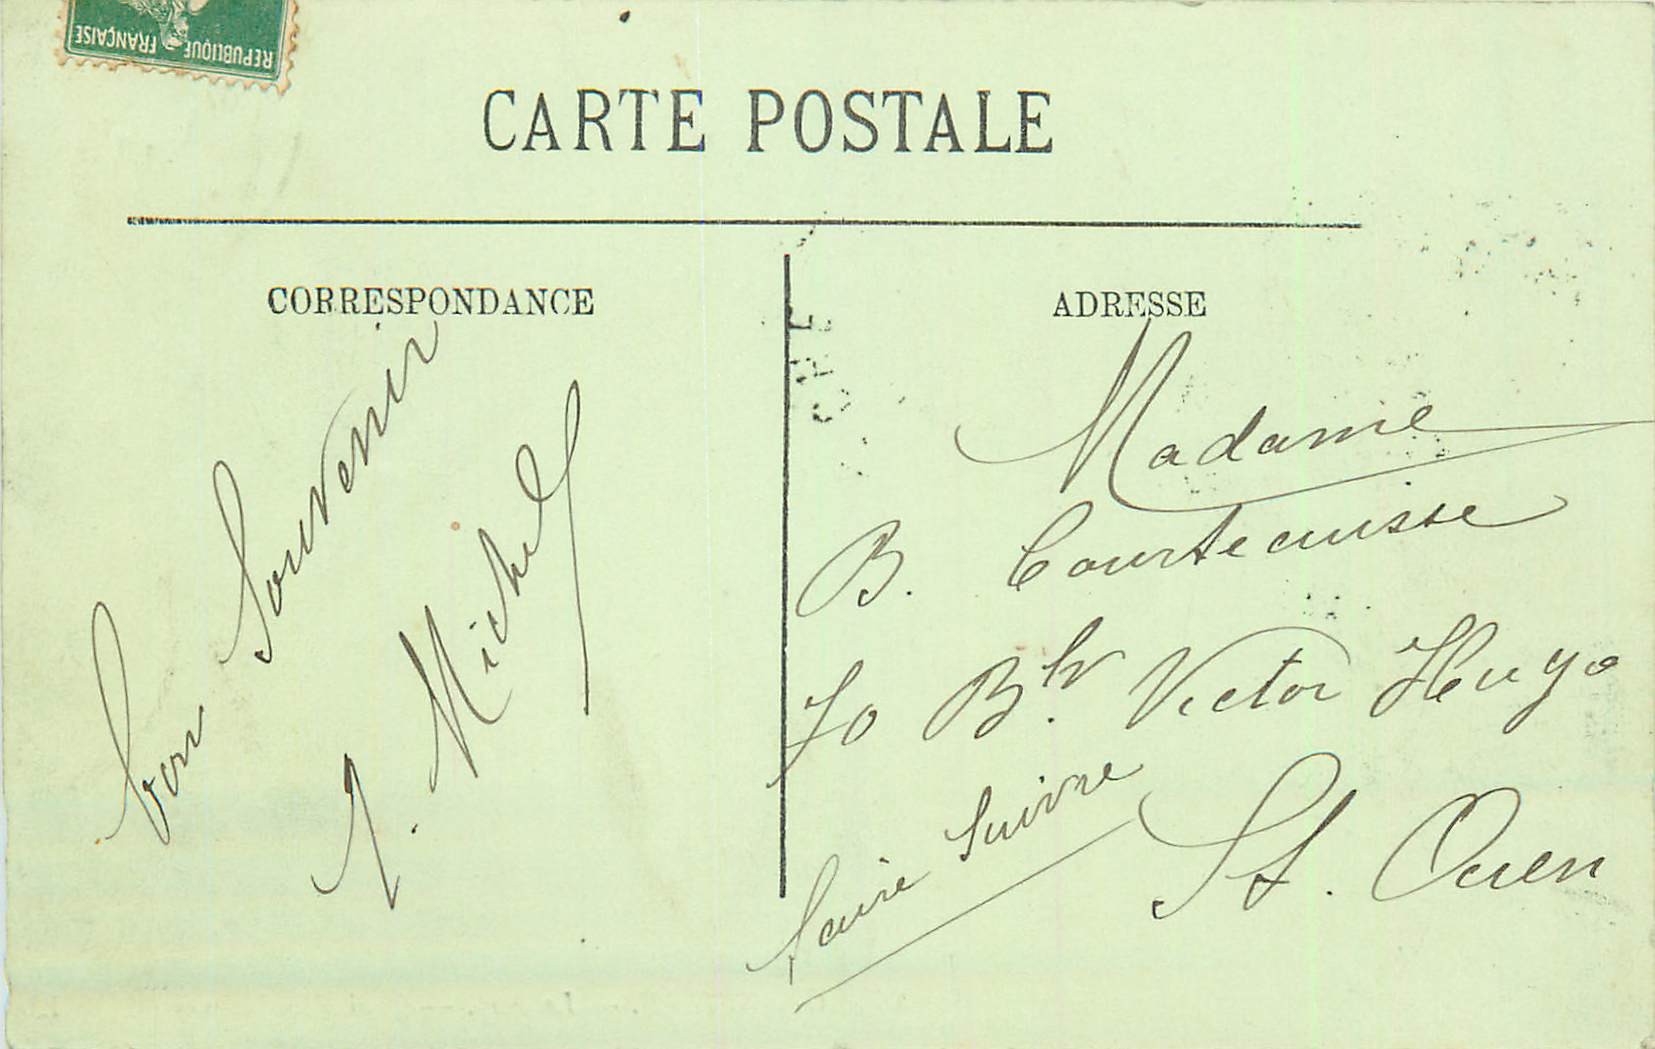 REPUBLIQUE FRANÇAISE
CARTE POSTALE
CORRESPONDANCE
ADRESSE
bon Souvenir
Michel
Madame
B. Courtecuisse
70 Bd. Victor Hugo
St. Ouen
faire suivre